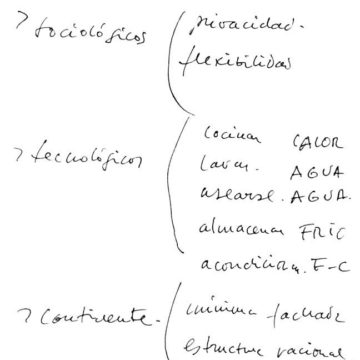 > sociológicos ( privacidad.
flexibilidad
cocinar CALOR
> tecnológicos ( lavar. AGUA
asearse. AGUA.
almacenar FRIC
acondicion. F-C
> Continente. ( mínima fachada
estructura racional